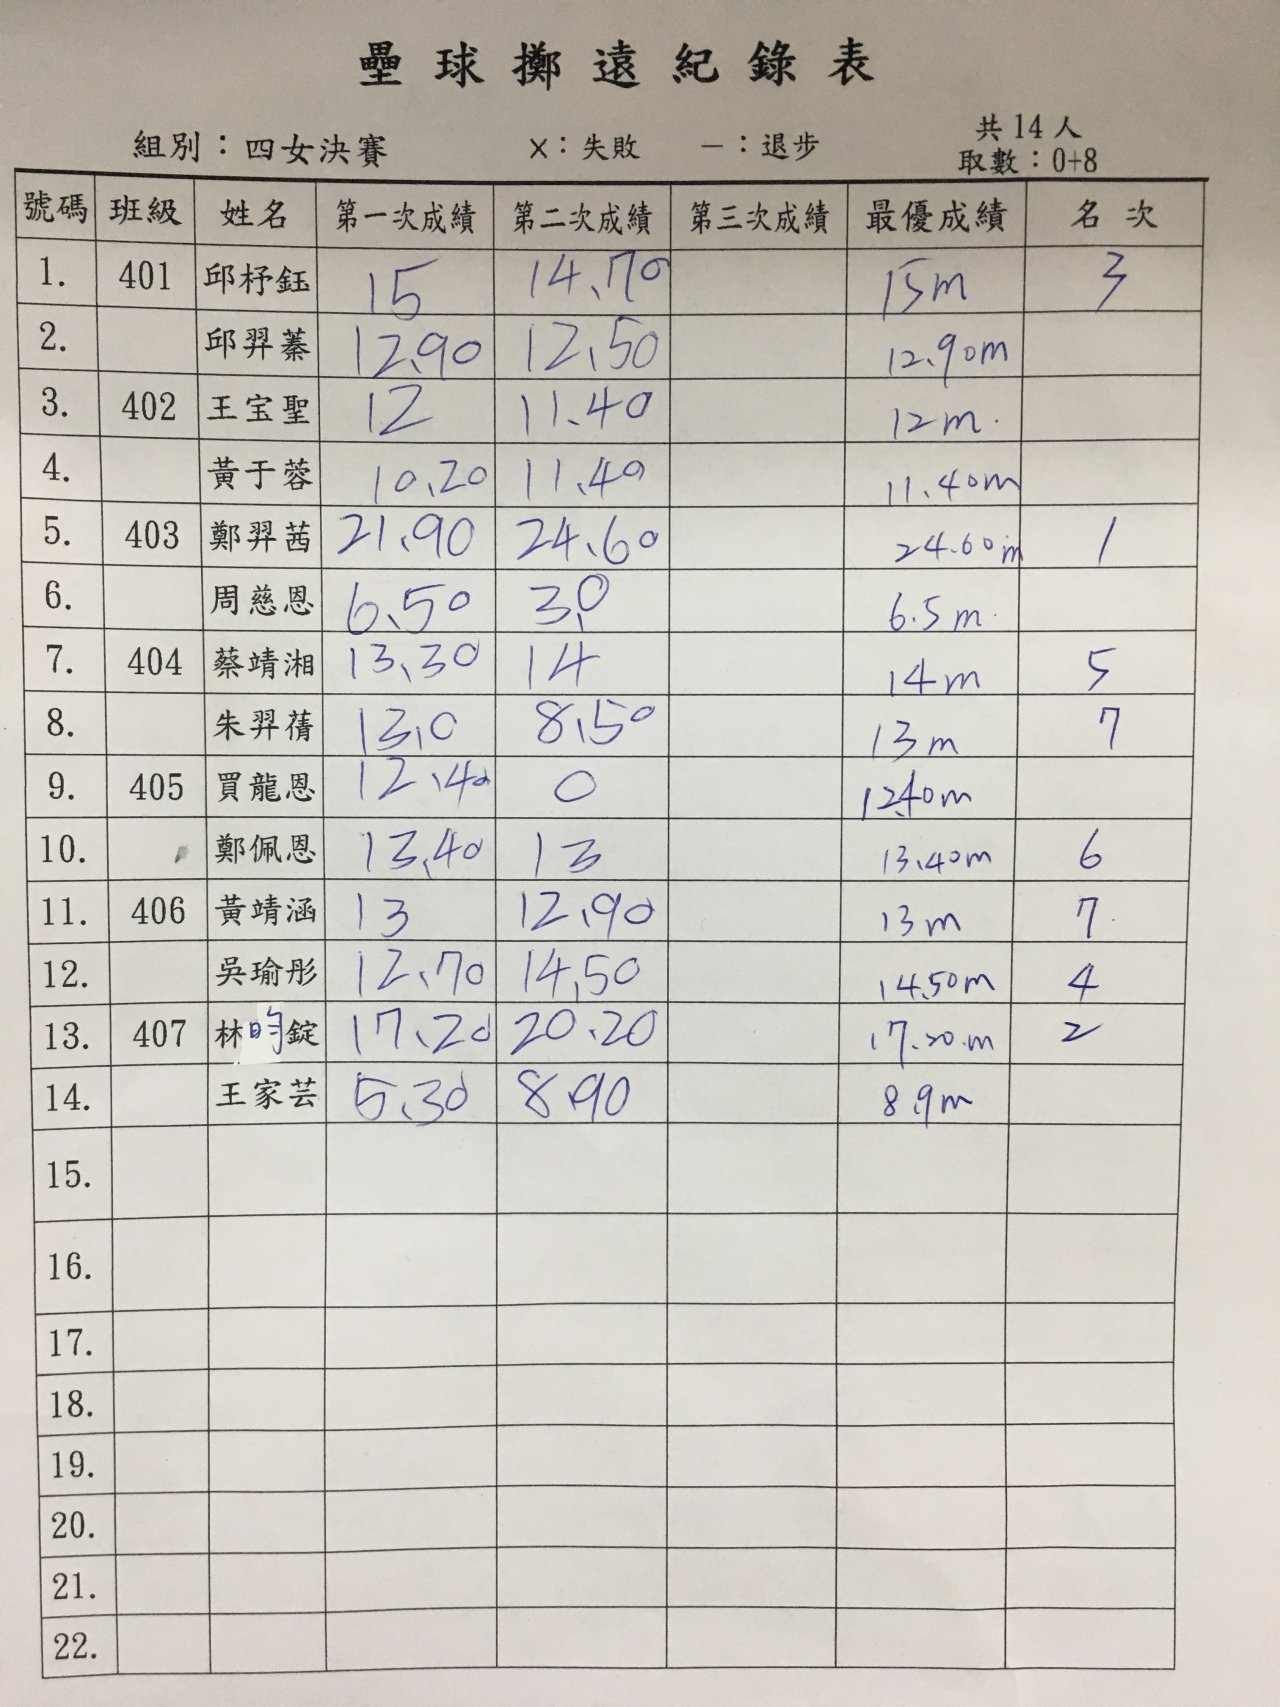 壘球擲遠紀錄表
組別：四女決賽 ×：失敗 －：退步 共14人
取數：0+8
號碼 班級 姓名 第一次成績 第二次成績 第三次成績 最優成績 名次
1. 401 邱杼鈺 15 14.70 15m 3
2. 邱羿蓁 12.90 12.50 12.90m
3. 402 王宝聖 12 11.40 12m.
4. 黃于蓉 10.20 11.40 11.40m
5. 403 鄭羿茜 21.90 24.60 24.60m 1
6. 周慈恩 6.50 3.0 6.5m.
7. 404 蔡靖湘 13.30 14 14m 5
8. 朱羿蒨 13.0 8.50 13m 7
9. 405 買龍恩 12.40 0 12.40m
10. 鄭佩恩 13.40 13 13.40m 6
11. 406 黃靖涵 13 12.90 13m 7.
12. 吳瑜彤 12.70 14.50 14.50m 4
13. 407 林昀錠 17.20 20.20 17.20.m 2
14. 王家芸 5.30 8.90 8.9m
15.
16.
17.
18.
19.
20.
21.
22.